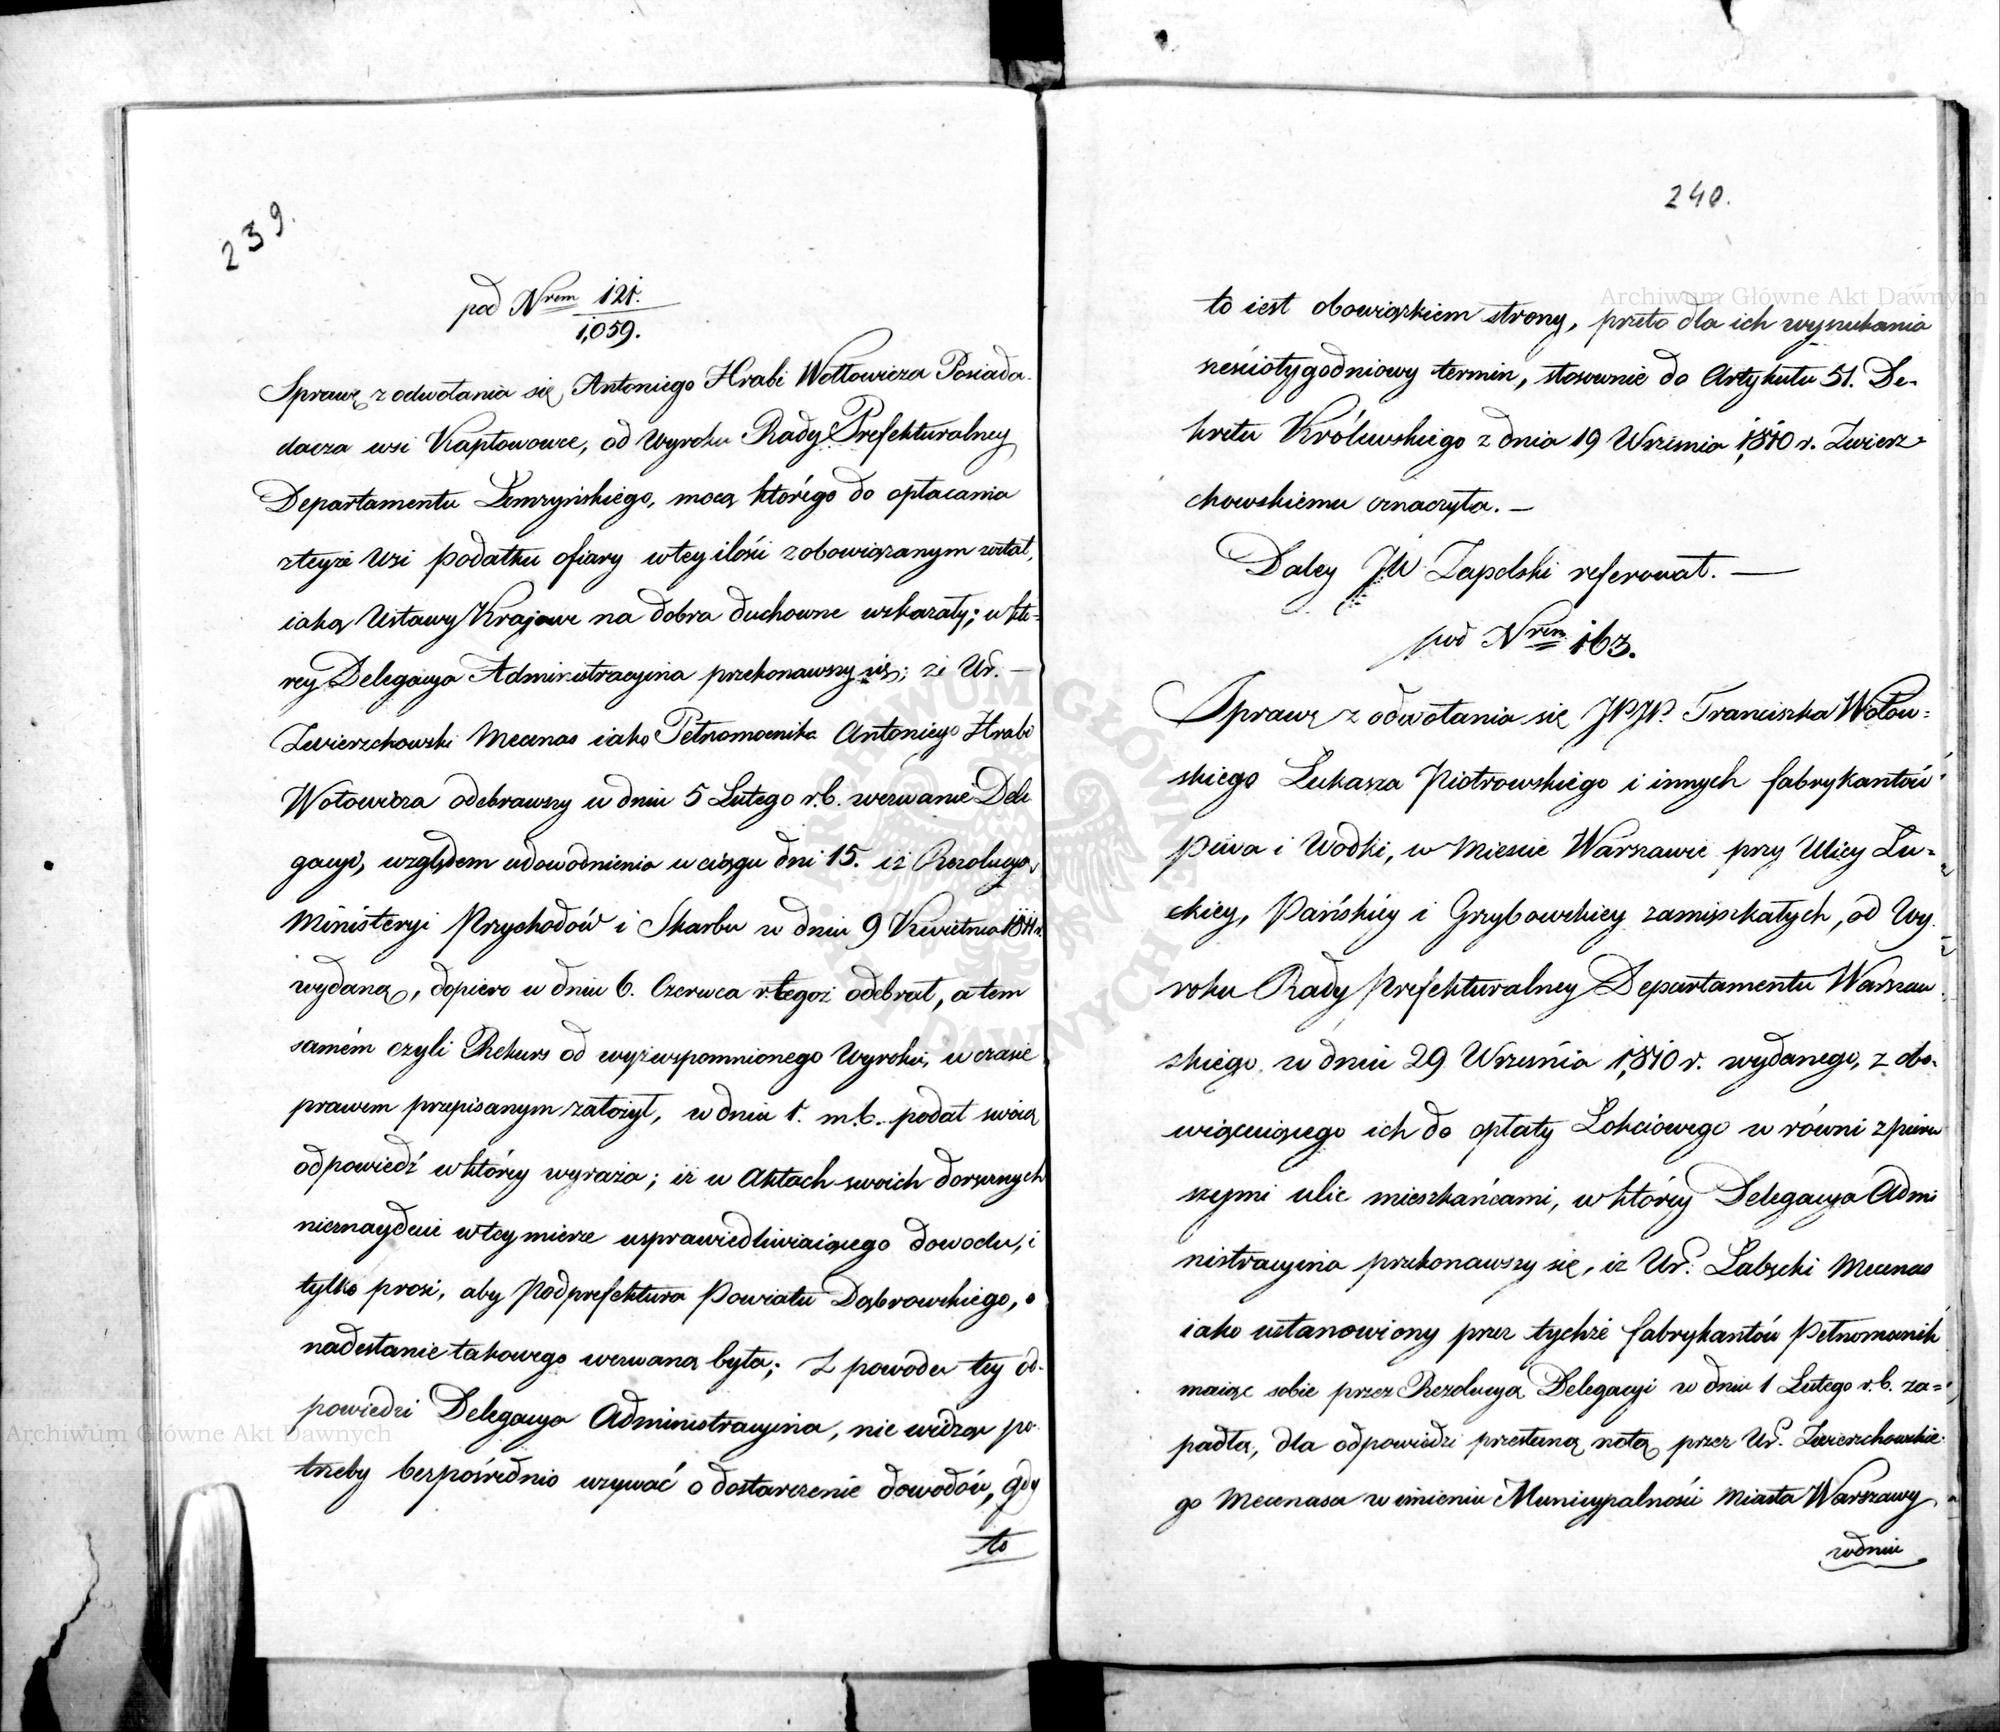 239.
pod Nrem 121.
1,059.
Sprawę z odwołania się Antoniego Hrabi Wołłowicza Posiada-
dacza wsi Kapłonowce, od Wyroku Rady Prefekturalney
Departamentu Łomżyńskiego, mocą którego do opłacania
zteyże Wsi podatku ofiary wtey ilości zobowiązanym został,
iaką Ustawy Krajowe na dobra duchowne wskazały; w któ-
rey Delegacya Administracyina przekonawszy się; że Ur. —
Zwierzchowski Mecenas iako Pełnomocnika Antoniego Hrabi
Wołowicza odebrawszy w dniu 5 Lutego r.b. wezwanie Dele
gacyi, względem udowodnienia w ciągu dni 15. iż Rezolucyą
Ministeryi Przychodów i Skarbu w dniu 9 Kwietnia 1811 r.
wydaną, dopiero w dniu 6. Czerwca r. tegoż odebrał, a tem
samém czyli Rekurs od wyżwspomnionego Wyroku, w czasie
prawem przepisanym założył, w dniu 1. m.b. podał swoią
odpowiedź w którey wyraża; iż w Aktach swoich doręcznych
nieznayduie wtey mierze usprawiedliwiaiącego dowodu, i
tylko prosi, aby Podprefektura Powiatu Dąbrowskiego, o
nadesłanie takowego wezwaną była; Z powodu tey od-
powiedzi Delegacya Administracyina, nie widząc po-
trzeby bezpośrednio wzywać o dostarczenie dowodów, gdy
to
240.
to iest obowiązkiem strony, przeto dla ich wyszukania
sześciotygodniowy termin, stosownie do Artykułu 51. De-
kretu Królewskiego z dnia 19 Września 1,810 r. Zwierz-
chowskiemu oznaczyła. —
Daley JW Zapolski referował. —
pod Nrem 163.
Sprawę z odwołania się JPJP. Franciszka Wołow-
skiego Łukasza Piotrowskiego i innych fabrykantów
piwa i Wodki, w Mieście Warszawie przy Ulicy Łu-
ckiey, Pańskiéy i Grzybowskiey zamięszkałych, od Wy-
roku Rady Prefekturalney Departamentu Warszaw
skiego w dniu 29 Września 1,810 r. wydanego, z obo-
więzuiącego ich do opłaty Łokciowego w równi z pierw
szymi ulic mieszkańcami, w którey Delegacya Admi
nistracyina przekonawszy się, iż Ur. Łabęcki Mecenas
iako ustanowiony przez tychże fabrykantów Pełnomocnik
maiąc sobie przez Rezolucyą Delegacyi w dniu 1 Lutego r.b. za-
padłą, dla odpowiedzi przesłaną notę przez Ur. Zwierzchowskie-
go Mecenasa w imieniu Municypalności Miasta Warszawy
wdniu
Archiwum Główne Akt Dawnych
Archiwum Główne Akt Dawnych
ARCHIWUM GŁÓWNE AKT DAWNYCH